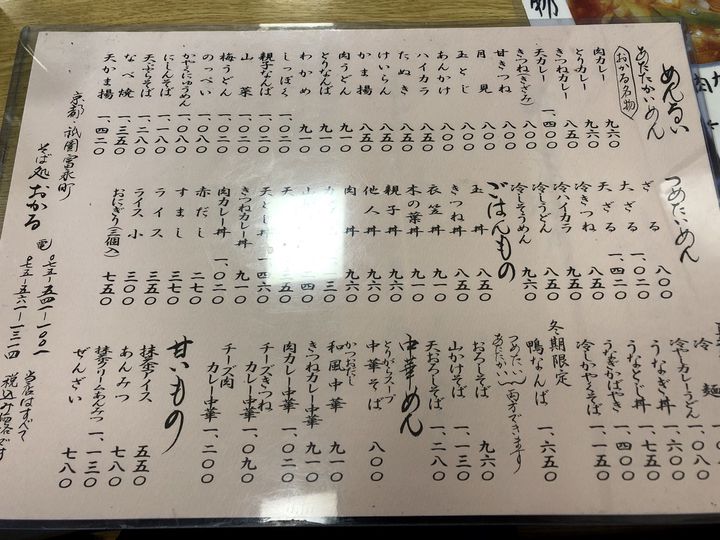 めんるい
あたたかいめん
おかる名物
肉カレー 九六〇
とりカレー 九六〇
きつねカレー 八五〇
天カレー 一、四〇〇
きつね(きざみ) 八五〇
甘きつね 八五〇
月見 八五〇
玉とじ 八五〇
あんかけ 八五〇
ハイカラ 八五〇
たぬき 八五〇
けいらん 八五〇
かま揚 八五〇
肉うどん
とりなんば 九一〇
わかめ 九一〇
しっぽく 一、〇二〇
親子なんば 一、〇二〇
山菜
梅うどん
のっぺい
かやくにゅうめん
にしんそば
天ぷらそば
なべ焼 一、三五〇
天かま揚 一、四二〇
つめたいめん
ざる 八〇〇
大ざる 一、〇二〇
天ざる 一、四〇〇
冷きつね 八五〇
冷ハイカラ 八五〇
冷しうどん 八五〇
冷しそうめん 九六〇
ごはんもの
玉丼 八五〇
きつね丼 八五〇
衣笠丼 九一〇
木の葉丼 九一〇
親子丼 九六〇
他人丼 九六〇
肉丼 九六〇
天とじ丼 一、四六〇
きつねカレー丼 九一〇
肉カレー丼 一、〇二〇
赤だし 二七〇
すまし 三七〇
ライス 三七〇
ライス小 三〇〇
おにぎり(三個入) 七五〇
冷麺
冷やカレーうどん 一、〇八〇
うなぎ丼 一、七五〇
うなとじ丼 一、七五〇
うなぎかばやき 一、四〇〇
冷しかやくそば 一、一五〇
冬期限定
鴨なんば 一、六五〇
つめたい
あたたかい
両方できます
おろしそば 九六〇
山かけそば 一、一三〇
天おろしそば 一、二八〇
中華めん
とりがらスープ
中華そば 八〇〇
かつおだし
和風中華 九一〇
きつねカレー中華 九一〇
肉カレー中華 一、〇二〇
チーズきつね
カレー中華 一、〇九〇
チーズ肉
カレー中華 一、二〇〇
甘いもの
抹茶アイス 五五〇
あんみつ 七八〇
抹茶クリームあんみつ 一、一三〇
ぜんざい 七八〇
京都 祇園富永町
そば処 おかる
電 〇七五-五四一-一〇〇一
〇七五-五六一-一三一四
当店はすべて
税込み価格です